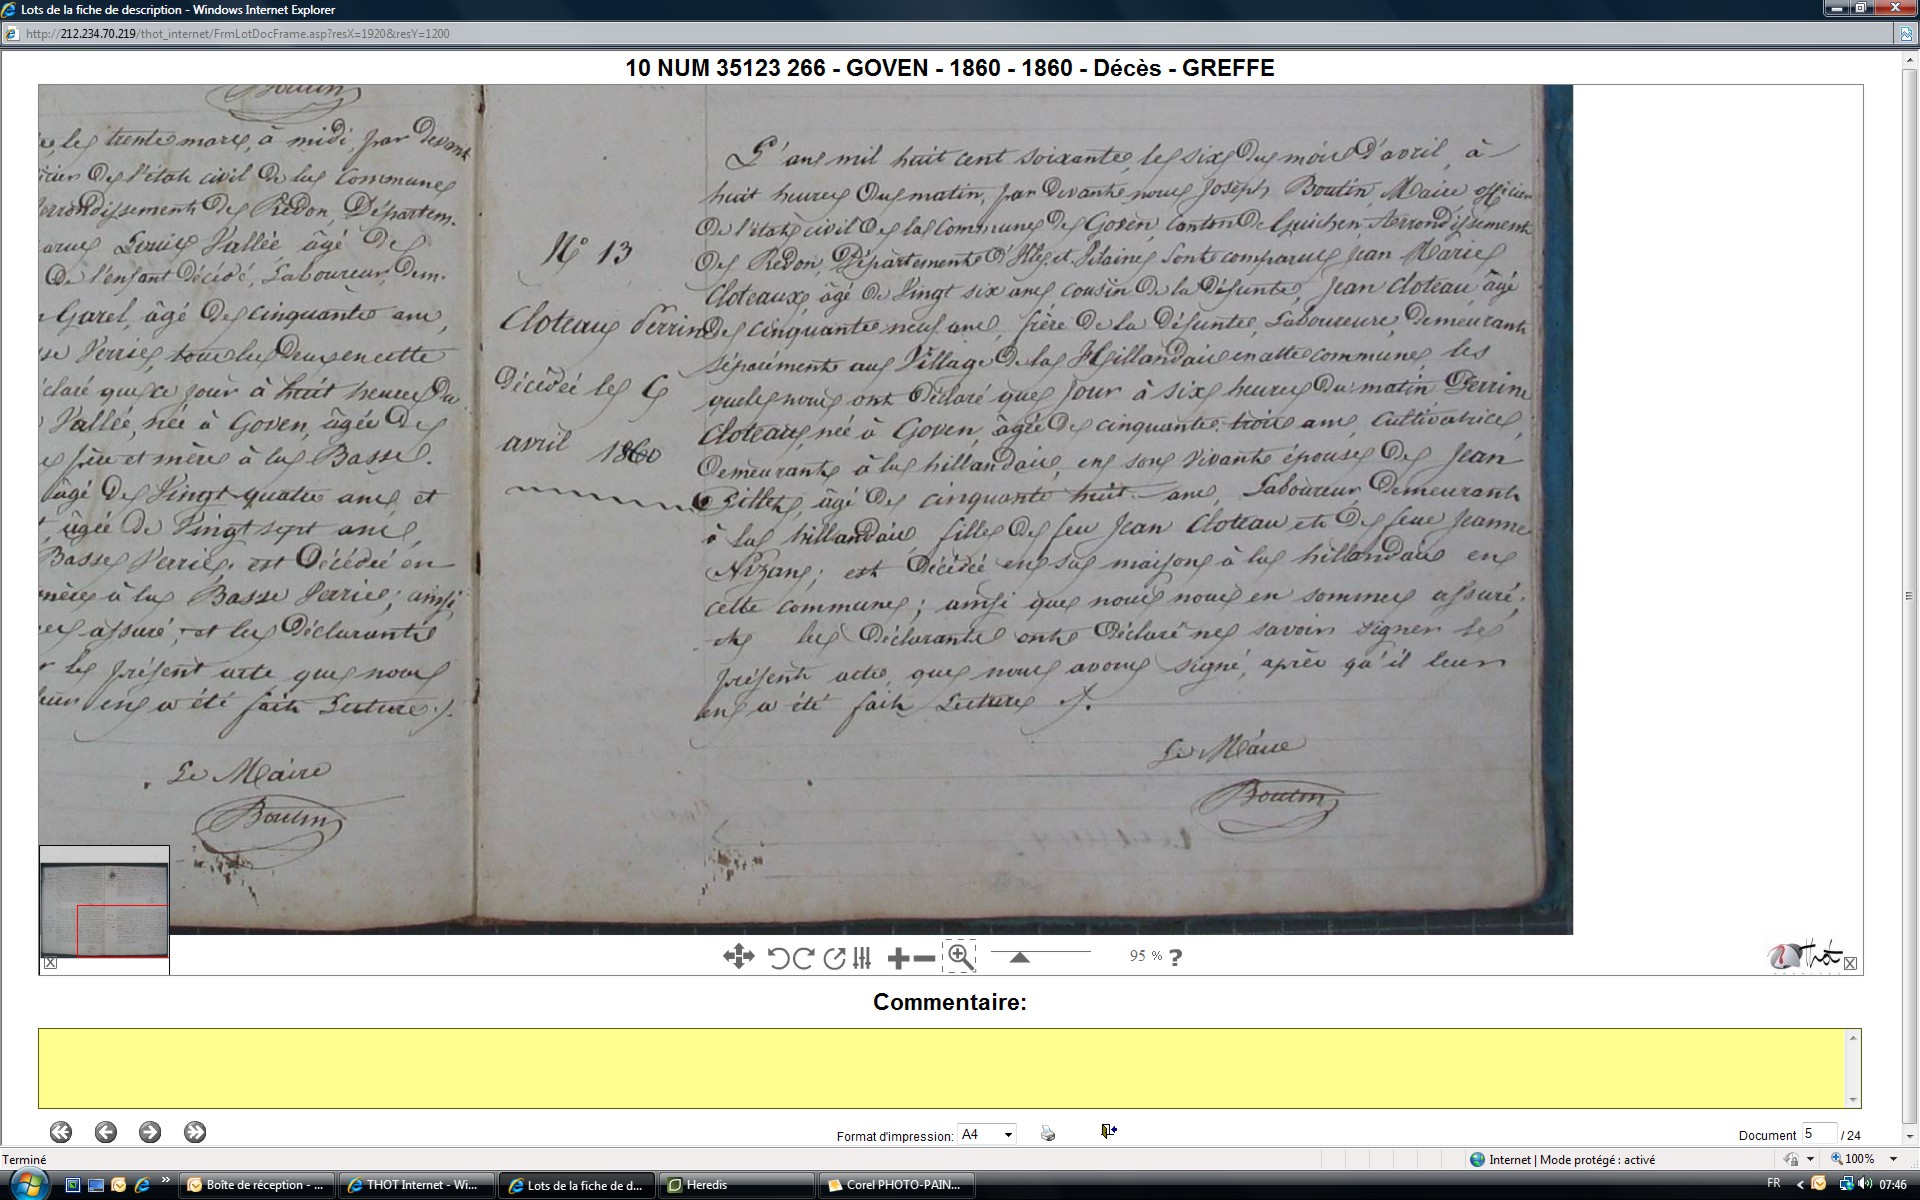 Lots de la fiche de description - Windows Internet Explorer
http://212.234.70.219/thot_internet/FrmLotDocFrame.asp?resX=1920&resY=1200
10 NUM 35123 266 - GOVEN - 1860 - 1860 - Décès - GREFFE
Boutin
les trente mars, à midi, par devant
de l'état civil de la commune
arrondissement de Redon, Départem.
Vallée âgé de
de l'enfant décédé, Laboureur, dem.
Garel, âgé de cinquante ans,
tous les deux en cette
claré que ce jour à huit heures du
Vallée, née à Goven, âgée de
père et mère à la Basse.
âgé de vingt quatre ans et
âgée de vingt sept ans,
Basse Verrie, est décédée en
à la Basse Verrie; ainsi
assuré; et les Déclarants
le présent acte que nous
en a été fait Lecture ./.
Le Maire
Boutin
N° 13
Cloteau Perrine
décédée le 6
avril 1860
L'an mil huit cent soixante, le six du mois d'avril, à
huit heures du matin, par devant nous Joseph Boutin, Maire officier
de l'état civil de la commune de Goven, Canton de Guichen, Arrondissement
de Redon, Département d'Ille et Vilaine sont comparus Jean Marie
Cloteaux, âgé de vingt six ans cousin de la défunte, Jean Cloteau âgé
de cinquante neuf ans, frère de la défunte, Laboureurs, demeurant
séparément au Village de la Hillandais en cette commune, les
quels nous ont déclaré que jour à six heures du matin Perrine
Cloteau, née à Goven, âgée de cinquante trois ans, Cultivatrice,
demeurant à la hillandais, en son vivant épouse de Jean
Gillet, âgé de cinquante huit ans, Laboureur demeurant
à la hillandais fille de feu Jean Cloteau et de feue Jeanne
Nizan; est décédée en sa maison à la hillandais en
cette commune; ainsi que nous nous en sommes assuré;
et les Déclarants ont déclaré ne savoir signer le
présent acte, que nous avons signé, après qu'il leur
en a été fait Lecture ./.
Le Maire
Boutin
95 % ?
Thot
Commentaire:
Format d'impression: A4
Document 5 / 24
Terminé
Internet | Mode protégé : activé
100%
Boîte de réception - ...
THOT Internet - Wi...
Lots de la fiche de d...
Heredis
Corel PHOTO-PAIN...
FR
07:46